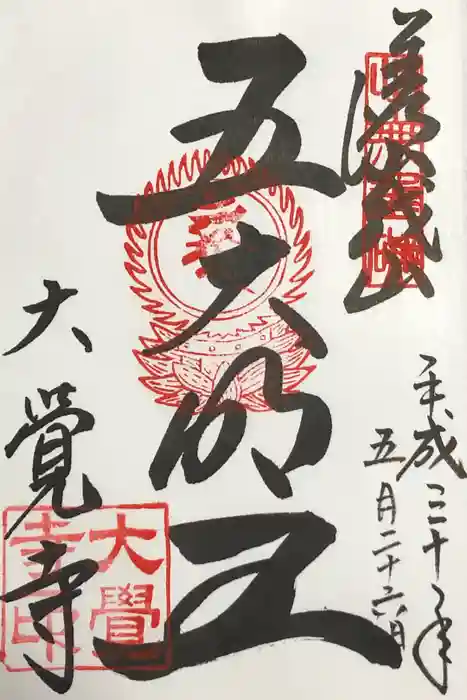 嵯峨山
五大明王
平成三十年
五月二十六日
大覺寺
大覺寺印